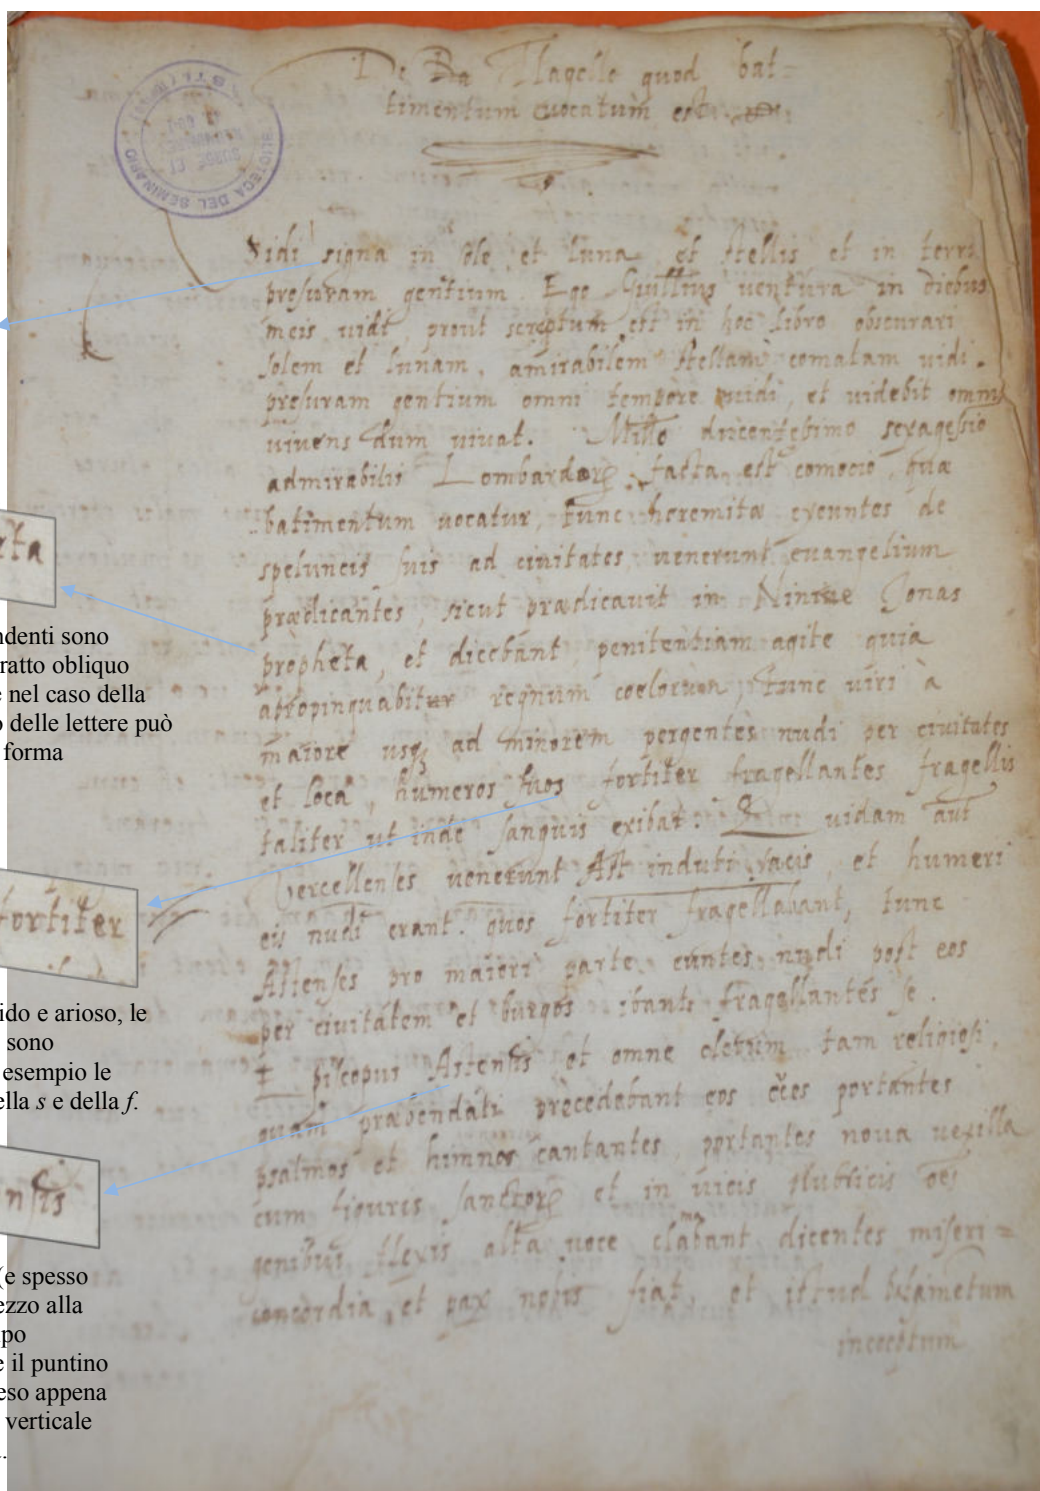 De Flagello quod bat=
timentum vocatum est
BIBLIOTECA DEL SEMINARIO
Vidi signa in sole et luna et stellis et in terris
presuram gentium. Ego Guillius ventura in diebus
meis vidi, prout scriptum est in hoc libro obscurari
solem et lunam, amirabilem stellam comatam vidi.
presuram gentium omni tempore vidi, et videbit omnis
vivens dum vivat. Mille ducentesimo sexagessio
admirabilis Lombardor. facta est comocio, quæ
batimentum vocatur, tunc heremitæ exeuntes de
speluncis suis ad civitates venerunt evangelium
prædicantes, sicut prædicavit in Ninive Jonas
propheta, et dicebant, penitentiam agite quia
apropinquabitur regnum coelorum, tunc viri à
maiore usq; ad minorem pergentes nudi per civitates
et loca, humeros suos fortiter fragellantes fragellis
taliter ut inde sanguis exibat. vidam aut
Vercellenses venerunt Ast induti sacis, et humeri
eis nudi erant. quos fortiter fragellabant, tunc
Astenses pro maiori parte euntes nudi post eos
per civitatem et burgos ibant fragellantes se.
Episcopus Astensis et omne clerum tam religiosi,
quam præbendati precedebant eos portantes
psalmos et himnos cantantes, portantes nova vexilla
cum figuris sanctor. et in vicis plublicis oes
genibus flexis alta voce clamabant dicentes miseri=
concordia, et pax nobis fiat, et istud
rta
ndenti sono
ratto obliquo
e nel caso della
o delle lettere può
forma
fortiter
ido e arioso, le
sono
esempio le
ella s e della f.
nsis
(e spesso
ezzo alla
po
e il puntino
eso appena
verticale